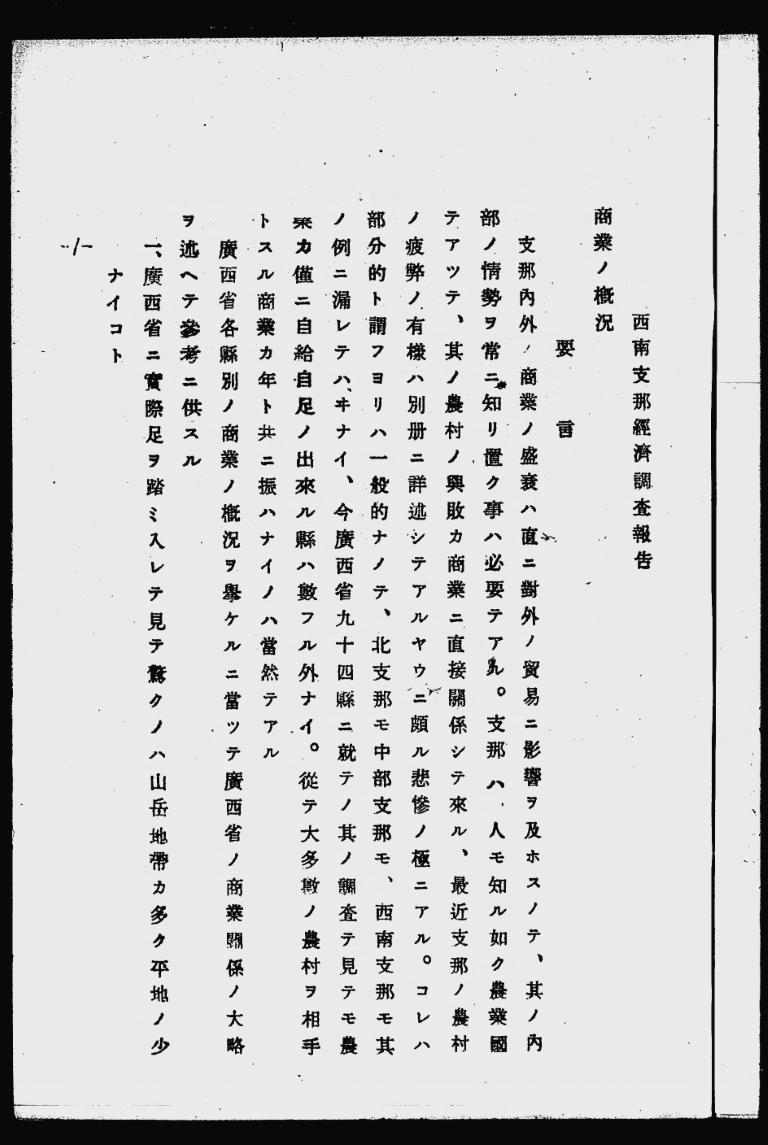 西南支那經濟調査報告
商業ノ概況
要言
支那內外ノ商業ノ盛衰ハ直ニ對外ノ貿易ニ影響ヲ及ホスノテ、其ノ內
部ノ情勢ヲ常ニ知リ置ク事ハ必要テアル。支那ハ、人モ知ル如ク農業國
テアツテ、其ノ農村ノ興敗カ商業ニ直接關係シテ來ル、最近支那ノ農村
ノ疲弊ノ有樣ハ別册ニ詳述シテアルヤウニ頗ル悲慘ノ極ニアル。コレハ
部分的ト謂フヨリハ一般的ナノテ、北支那モ中部支那モ、西南支那モ其
ノ例ニ漏レテハヰナイ、今廣西省九十四縣ニ就テノ其ノ調査テ見テモ農
業カ僅ニ自給自足ノ出來ル縣ハ數フル外ナイ。從テ大多數ノ農村ヲ相手
トスル商業カ年ト共ニ振ハナイノハ當然テアル
廣西省各縣別ノ商業ノ概況ヲ擧ケルニ當ツテ廣西省ノ商業關係ノ大略
ヲ述ヘテ參考ニ供スル
一、廣西省ニ實際足ヲ踏ミ入レテ見テ驚クノハ山岳地帶カ多ク平地ノ少
ナイコト
-1-